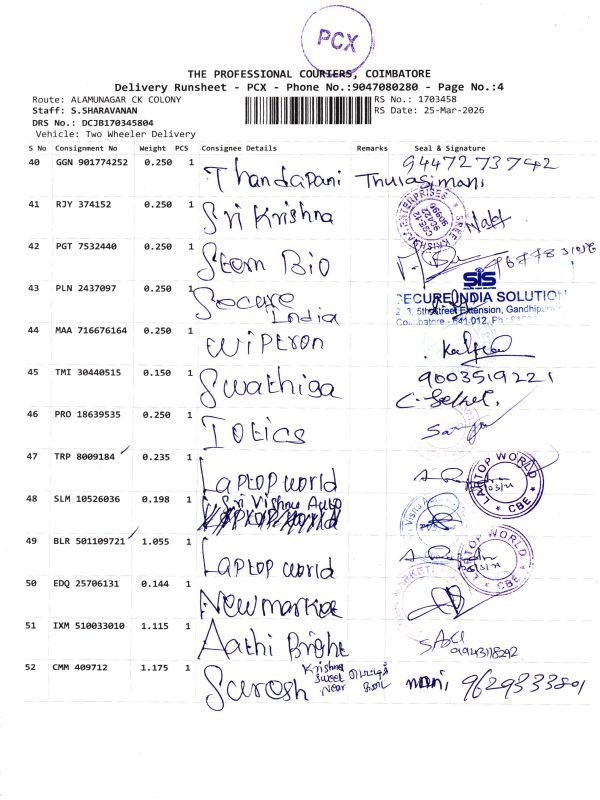 PCX
THE PROFESSIONAL COURIERS, COIMBATORE
Delivery Runsheet - PCX - Phone No.:9047080280 - Page No.:4
Route: ALAMUNAGAR CK COLONY
RS No.: 1703458
Staff: S.SHARAVANAN
RS Date: 25-Mar-2026
DRS No.: DCJB170345804
Vehicle: Two Wheeler Delivery
S No Consignment No Weight PCS Consignee Details Remarks Seal & Signature
40 GGN 901774252 0.250 1 Thandapani Thulasimani 9447273742
41 RJY 374152 0.250 1 Sri Krishna
42 PGT 7532440 0.250 1 Stem Bio
43 PLN 2437097 0.250 1 Secure India
SIS
SECURE INDIA SOLUTION
5th Street Extension, Gandhipuram
Coimbatore - 641 012, Ph :
44 MAA 716676164 0.250 1 Wiptron
45 TMI 30440515 0.150 1 Swathiga 9003519221
46 PRO 18639535 0.250 1 Totics
47 TRP 8009184 0.235 1 Laptop world
LAPTOP WORLD CBE
48 SLM 10526036 0.198 1 Sri Vishnu Auto
49 BLR 501109721 1.055 1 Laptop world
LAPTOP WORLD CBE
50 EDQ 25706131 0.144 1 New market
51 IXM 510033010 1.115 1 Aathi Bright
52 CMM 409712 1.175 1 Suresh Krishna Sweet Near mani 9629333801